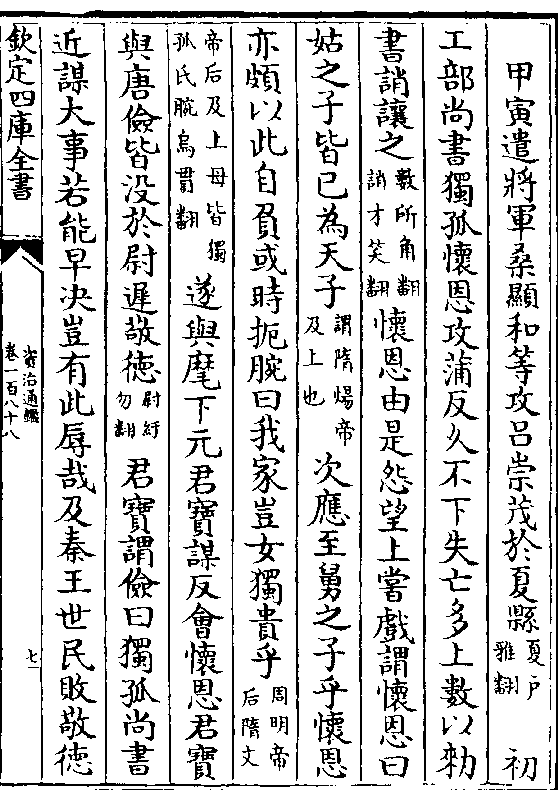 甲寅遣將軍桑顯和等攻吕崇茂於夏縣夏戶雅翻初
工部尚書獨孤懷恩攻蒲反久不下失亡多上數以勑
書誚讓之數所角翻誚才笑翻懷恩由是怨望上嘗戲謂懷恩曰
姑之子皆已為天子謂隋煬帝及上也次應至舅之子乎懷恩
亦頗以此自負或時扼腕曰我家豈女獨貴乎周明帝后隋文
帝后及上母皆獨孤氏腕烏貫翻遂與麾下元君寶謀反會懷恩君寶
與唐儉皆没於尉遲敬德尉紆勿翻君寶謂儉曰獨孤尚書
近謀大事若能早决豈有此辱哉及秦王世民敗敬德
欽定四庫全書
資治通鑑
卷一百八十八
七